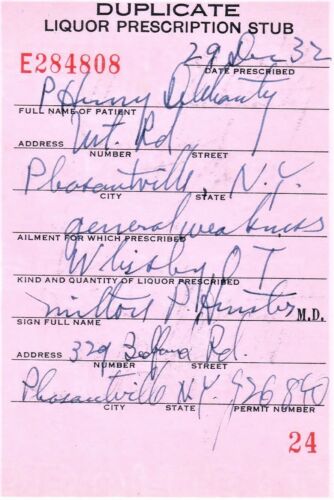 DUPLICATE
LIQUOR PRESCRIPTION STUB
E284808
29 Dec 32
DATE PRESCRIBED
P Henry Delehanty
FULL NAME OF PATIENT
Rd
ADDRESS NUMBER STREET
Pleasantville, N.Y.
CITY STATE
general weakness
AILMENT FOR WHICH PRESCRIBED
KIND AND QUANTITY OF LIQUOR PRESCRIBED
Milton P. M.D.
SIGN FULL NAME
ADDRESS 329 Bedford Rd.
NUMBER STREET
Pleasantville N.Y. 926840
CITY STATE PERMIT NUMBER
24